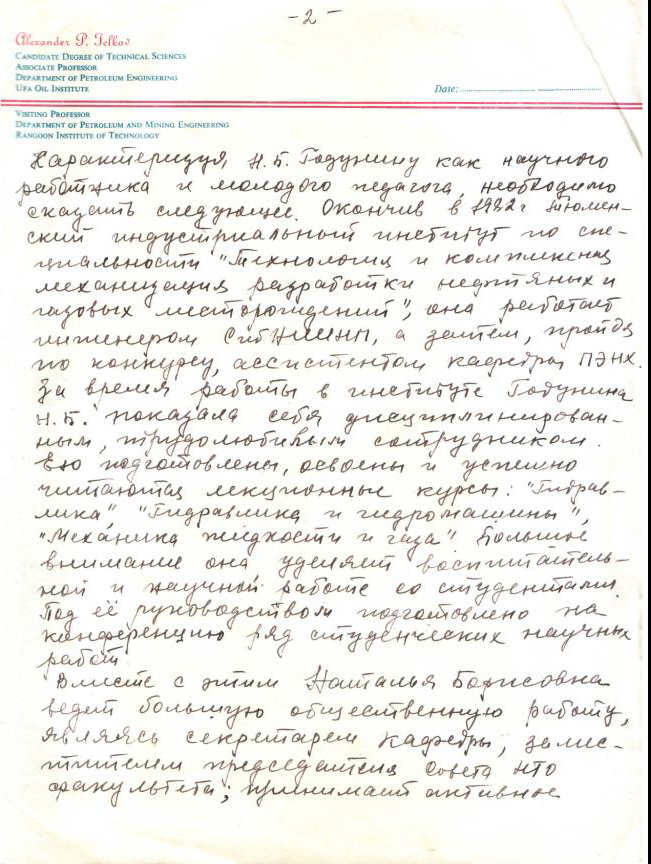 -2-
Alexander P. Telkov
CANDIDATE DEGREE OF TECHNICAL SCIENCES
ASSOCIATE PROFESSOR
DEPARTMENT OF PETROLEUM ENGINEERING
UFA OIL INSTITUTE
Date:
VISITING PROFESSOR
DEPARTMENT OF PETROLEUM AND MINING ENGINEERING
RANGOON INSTITUTE OF TECHNOLOGY
Характеризуя Н.Б. Годунину как научного
работника и молодого педагога, необходимо
сказать следующее. Окончив в 1982г Тюмен-
ский индустриальный институт по спе-
циальности "Технология и комплексная
механизация разработки нефтяных и
газовых месторождений", она работает
инженером СибНИИНП, а затем, пройдя
по конкурсу, ассистентом кафедры ПЭНХ.
За время работы в институте Годунина
Н.Б. показала себя дисциплинирован-
ным, трудолюбивым сотрудником.
Ею подготовлены, освоены и успешно
читаются лекционные курсы: "Гидрав-
лика", "Гидравлика и гидромашины",
"Механика жидкости и газа" Большое
внимание она уделяет воспитатель-
ной и научной работе со студентами.
Под её руководством подготовлено на
конференцию ряд студенческих научных
работ.
Вместе с этим Наталья Борисовна
ведет большую общественную работу,
являясь секретарем кафедры, замес-
тителем председателя Совета НТО
факультета; принимает активное